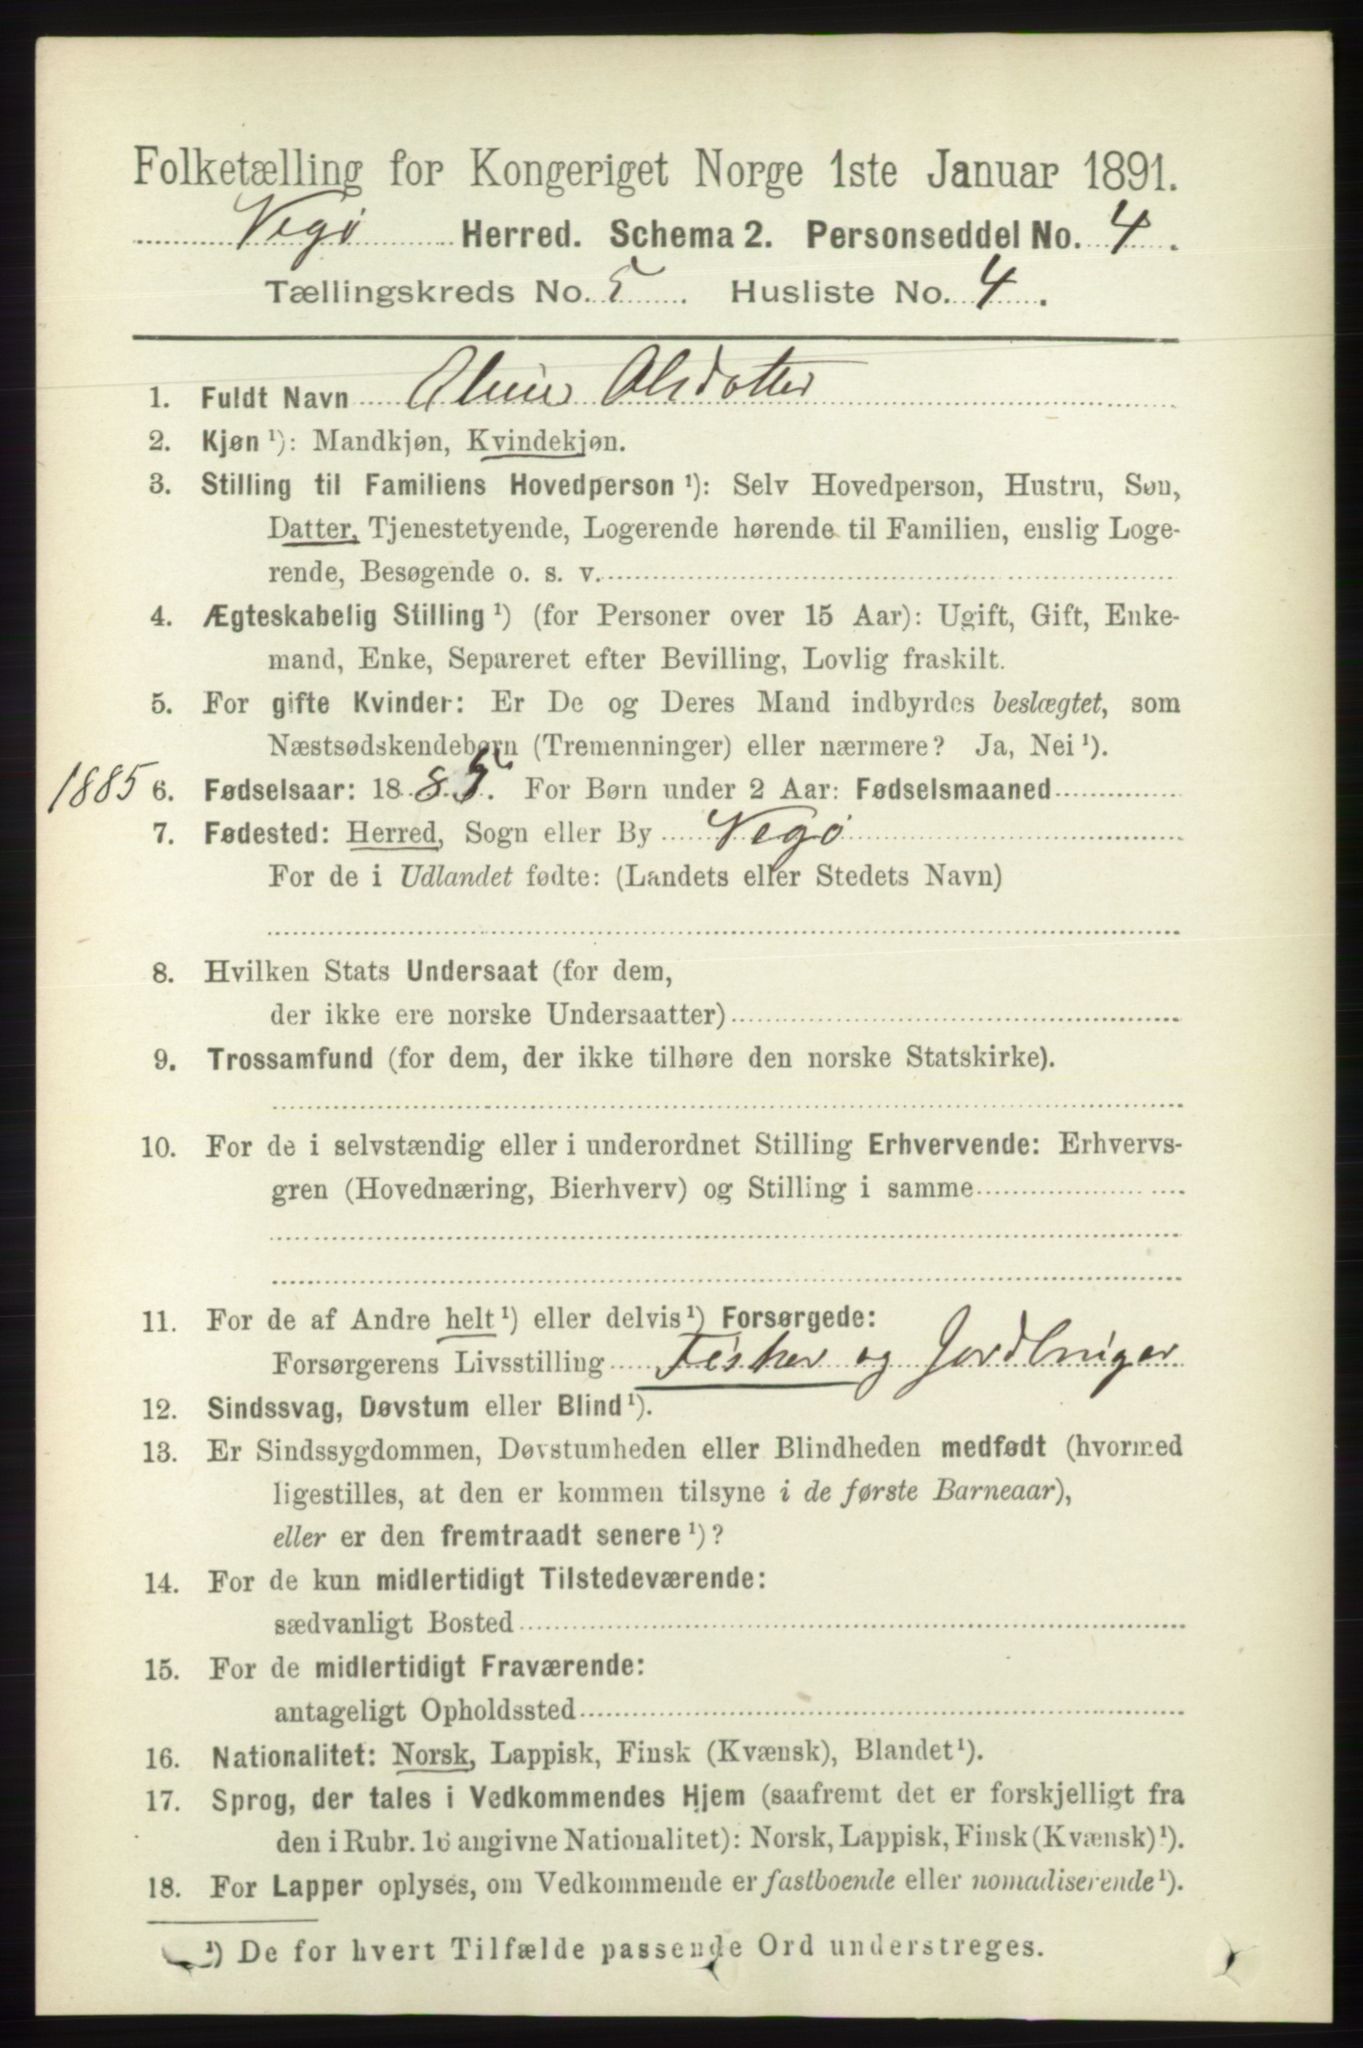 Folketælling for Kongeriget Norge 1ste Januar 1891.
Vegø Herred. Schema 2. Personseddel No. 4.
Tællingskreds No. 5. Husliste No. 4.
1. Fuldt Navn Olsdatter
2. Kjøn ¹): Mandkjøn, Kvindekjøn.
3. Stilling til Familiens Hovedperson ¹): Selv Hovedperson, Hustru, Søn,
Datter, Tjenestetyende, Logerende hørende til Familien, enslig Loge-
rende, Besøgende o. s. v.
4. Ægteskabelig Stilling ¹) (for Personer over 15 Aar): Ugift, Gift, Enke-
mand, Enke, Separeret efter Bevilling, Lovlig fraskilt.
5. For gifte Kvinder: Er De og Deres Mand indbyrdes beslægtet, som
Næstsødskendebørn (Tremenninger) eller nærmere? Ja, Nei ¹).
1885 6. Fødselsaar: 1885. For Børn under 2 Aar: Fødselsmaaned
7. Fødested: Herred, Sogn eller By Vegø
For de i Udlandet fødte: (Landets eller Stedets Navn)
8. Hvilken Stats Undersaat (for dem,
der ikke ere norske Undersaatter)
9. Trossamfund (for dem, der ikke tilhøre den norske Statskirke).
10. For de i selvstændig eller i underordnet Stilling Erhvervende: Erhvervs-
gren (Hovednæring, Bierhverv) og Stilling i samme
11. For de af Andre helt ¹) eller delvis ¹) Forsørgede:
Forsørgerens Livsstilling Fisker og Jordbruger
12. Sindssvag, Døvstum eller Blind ¹).
13. Er Sindssygdommen, Døvstumheden eller Blindheden medfødt (hvormed
ligestilles, at den er kommen tilsyne i de første Barneaar),
eller er den fremtraadt senere ¹)?
14. For de kun midlertidigt Tilstedeværende:
sædvanligt Bosted
15. For de midlertidigt Fraværende:
antageligt Opholdssted
16. Nationalitet: Norsk, Lappisk, Finsk (Kvænsk), Blandet ¹).
17. Sprog, der tales i Vedkommendes Hjem (saafremt det er forskjelligt fra
den i Rubr. 16 angivne Nationalitet): Norsk, Lappisk, Finsk (Kvænsk) ¹).
18. For Lapper oplyses, om Vedkommende er fastboende eller nomadiserende ¹).
¹) De for hvert Tilfælde passende Ord understreges.